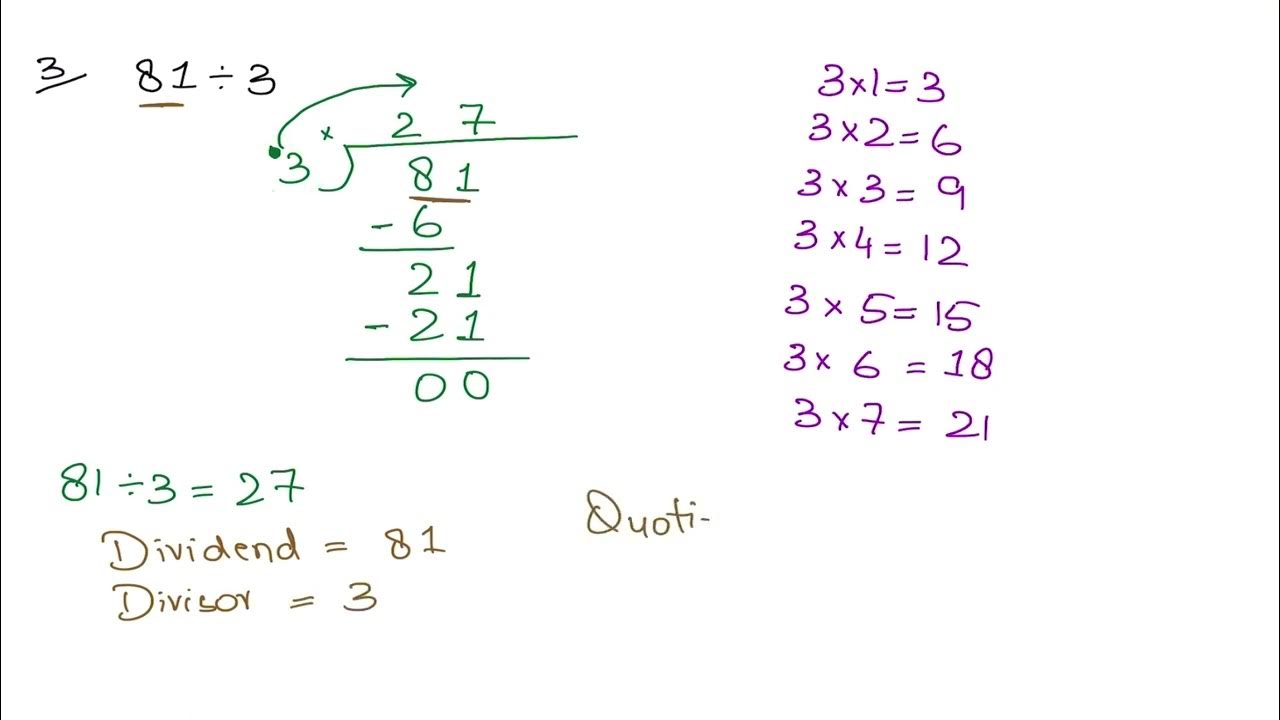 3 81 ÷ 3
2 7
3 ) 81
- 6
21
- 21
00
3 × 1 = 3
3 × 2 = 6
3 × 3 = 9
3 × 4 = 12
3 × 5 = 15
3 × 6 = 18
3 × 7 = 21
81 ÷ 3 = 27
Dividend = 81
Divisor = 3
Quoti-